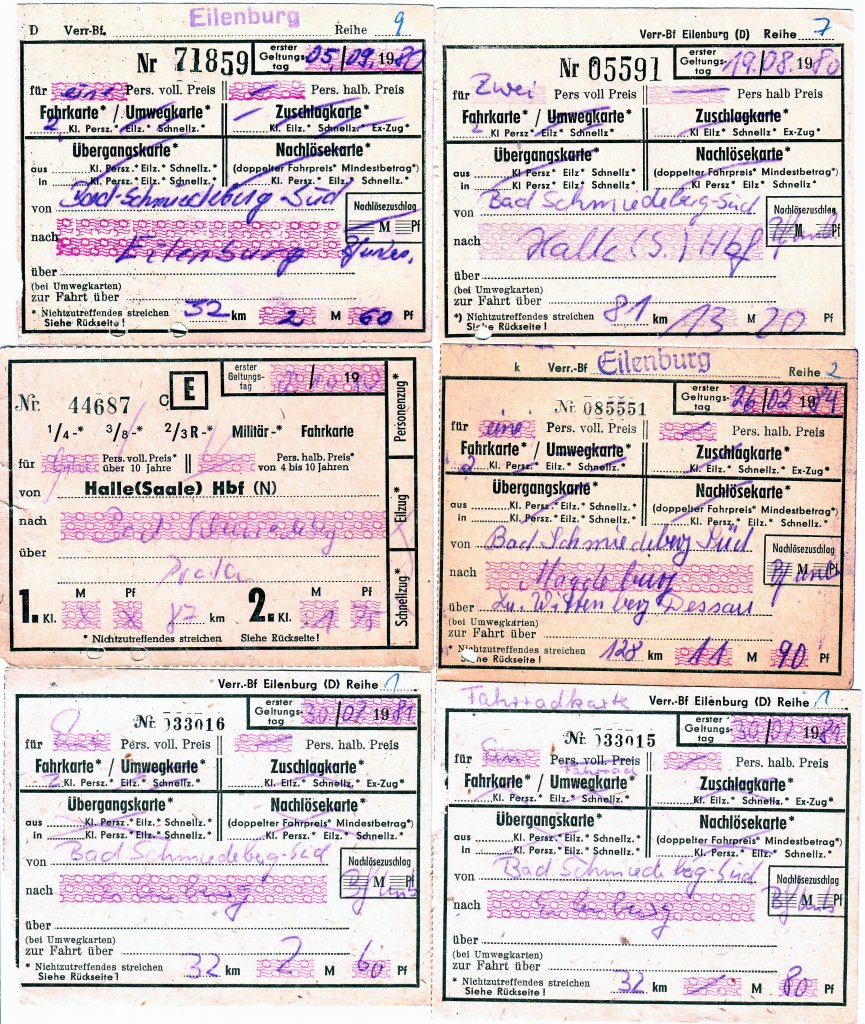 Eilenburg
D Verr-Bf. Reihe 9
Nr 71859
erster Geltungstag 05./09. 1980
für eine Pers. voll. Preis Pers. halb. Preis
Fahrkarte* / Umwegkarte* Zuschlagkarte*
2 Kl. Persz.* Eilz.* Schnellz.* Kl. Eilz.* Schnellz.* Ex-Zug*
Übergangskarte* Nachlösekarte*
aus Kl. Persz.* Eilz.* Schnellz.* (doppelter Fahrpreis* Mindestbetrag*)
in Kl. Persz.* Eilz.* Schnellz.* Kl. Persz.* Eilz.* Schnellz.*
von Bad-Schmiedeberg-Süd Nachlösezuschlag
nach Eilenburg M Pf
über
(bei Umwegkarten)
zur Fahrt über
* Nichtzutreffendes streichen 32 km 2 M 60 Pf
Siehe Rückseite!
Verr-Bf Eilenburg (D) Reihe 7
Nr 05591
erster Geltungstag 19./08. 1980
für Zwei Pers voll. Preis Pers. halb Preis
Fahrkarte* / Umwegkarte* Zuschlagkarte*
2 Kl Persz* Eilz* Schnellz.* Kl Eilz* Schnellz.* Ex-Zug*
Übergangskarte* Nachlösekarte*
aus Kl. Persz.* Eilz* Schnellz* (doppelter Fahrpreis* Mindestbetrag*)
in Kl. Persz* Eilz* Schnellz.* Kl. Persz.* Eilz.* Schnellz.*
von Bad Schmiedeberg-Süd Nachlösezuschlag
nach Halle (S.) Hbf M Pf
über
(bei Umwegkarten)
zur Fahrt über
*) Nichtzutreffendes streichen 81 km 13 M 20 Pf
Siehe Rückseite!
Nr. 44687 C E
erster Geltungstag 19
1/4-* 3/8-* 2/3 R-* Militär-* Fahrkarte
für Pers. voll. Preis* über 10 Jahre Pers. halb. Preis* von 4 bis 10 Jahren
von Halle(Saale) Hbf (N)
nach Bad Schmiedebg
über Pratau
1. Kl. M Pf 87 km 2. Kl. M Pf 1 75
* Nichtzutreffendes streichen Siehe Rückseite!
Personenzug*
Eilzug*
Schnellzug*
k Verr.-Bf Eilenburg Reihe 2
Nr. 085551
erster Geltungstag 26/02 1984
für eine Pers. voll. Preis Pers. halb. Preis
Fahrkarte* / Umwegkarte* Zuschlagkarte*
2 Kl. Persz.* Eilz.* Schnellz.* Kl. Eilz.* Schnellz.* Ex-Zug*
Übergangskarte* Nachlösekarte*
aus Kl. Persz.* Eilz.* Schnellz.* (doppelter Fahrpreis* Mindestbetrag*)
in Kl. Persz.* Eilz.* Schnellz.* Kl. Persz.* Eilz.* Schnellz.*
von Bad Schmiedeberg Süd Nachlösezuschlag
nach Magdeburg M Pf
über Lu. Wittenberg Dessau
(bei Umwegkarten)
zur Fahrt über
* Nichtzutreffendes streichen 128 km 11 M 90 Pf
Siehe Rückseite!
Verr.-Bf Eilenburg (D) Reihe 1
Nr. 033016
erster Geltungstag 30/07 1981
für Pers. voll. Preis Pers. halb. Preis
Fahrkarte* / Umwegkarte* Zuschlagkarte*
2 Kl. Persz.* Eilz.* Schnellz.* Kl. Eilz.* Schnellz.* Ex-Zug*
Übergangskarte* Nachlösekarte*
aus Kl. Persz.* Eilz.* Schnellz.* (doppelter Fahrpreis* Mindestbetrag*)
in Kl. Persz.* Eilz.* Schnellz.* Kl. Persz.* Eilz.* Schnellz.*
von Bad Schmiedeberg-Süd Nachlösezuschlag
nach Eilenburg M Pf
über
(bei Umwegkarten)
zur Fahrt über
* Nichtzutreffendes streichen 32 km 2 M 60 Pf
Siehe Rückseite!
Fahrradkarte Verr.-Bf Eilenburg (D) Reihe 1
Nr. 033015
erster Geltungstag 30/07 1981
für Ein Pers. voll. Preis Pers. halb. Preis
Fahrrad
Fahrkarte* / Umwegkarte* Zuschlagkarte*
Kl. Persz.* Eilz.* Schnellz.* Kl. Eilz.* Schnellz.* Ex-Zug*
Übergangskarte* Nachlösekarte*
aus Kl. Persz.* Eilz.* Schnellz.* (doppelter Fahrpreis* Mindestbetrag*)
in Kl. Persz.* Eilz.* Schnellz.* Kl. Persz.* Eilz.* Schnellz.*
von Bad Schmiedeberg-Süd Nachlösezuschlag
nach Eilenburg M Pf
über
(bei Umwegkarten)
zur Fahrt über
* Nichtzutreffendes streichen 32 km M 80 Pf
Siehe Rückseite!